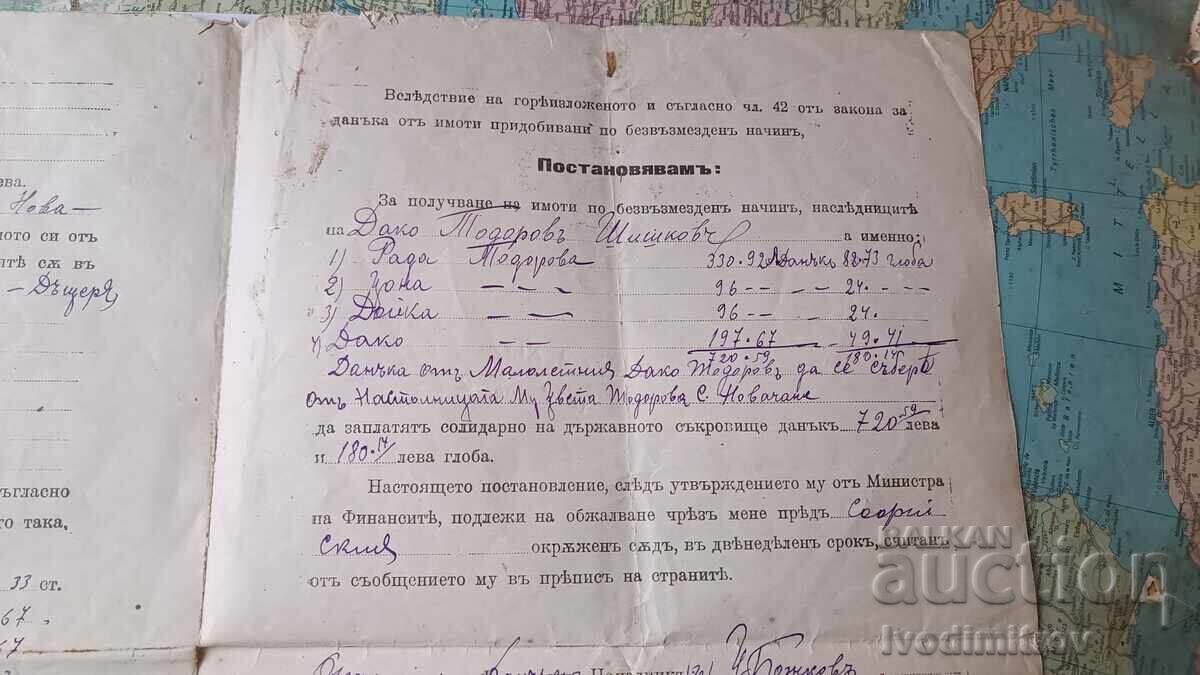 ева.
Нова-
ното си отъ
ятѣ сѫ въ
- Дъщеря,
съгласно
то така,
33 ст.
67 „
67
Вслѣдствие на горѣизложеното и съгласно чл. 42 отъ закона за
данъка отъ имоти придобивани по безвъзмезденъ начинъ,
Постановявамъ:
За получване на имоти по безвъзмезденъ начинъ, наслѣдницитѣ
на Дако Тодоровъ Шишковъ а именно:
1) Рада Тодорова 330.92 Данъкъ 82.73 глоба
2) Цона — — — 96 -- — — 24. — — —
3) Дойка — — 96 -- 24.
4) Дако — — 197.67 — 49.41
720.59 180.14
Данъка отъ Малолетния Дако Тодоровъ да се събере
отъ Настолницата Му Звѣста Тодорова с. Новачане
да заплатятъ солидарно на държавното съкровище данъкъ 720.59 лева
и 180.14 лева глоба.
Настоящето постановление, слѣдъ утвърждението му отъ Министра
на Финанситѣ, подлежи на обжалване чрѣзъ мене прѣдъ Софий
ския окрѫженъ сѫдъ, въ двѣнедѣленъ срокъ, считанъ
отъ съобщението му въ прѣписъ на странитѣ.
Началникъ: Божковъ
BALKAN
auction
Ivodimitrov
Tyrrhenisches Meer
M I T T E L